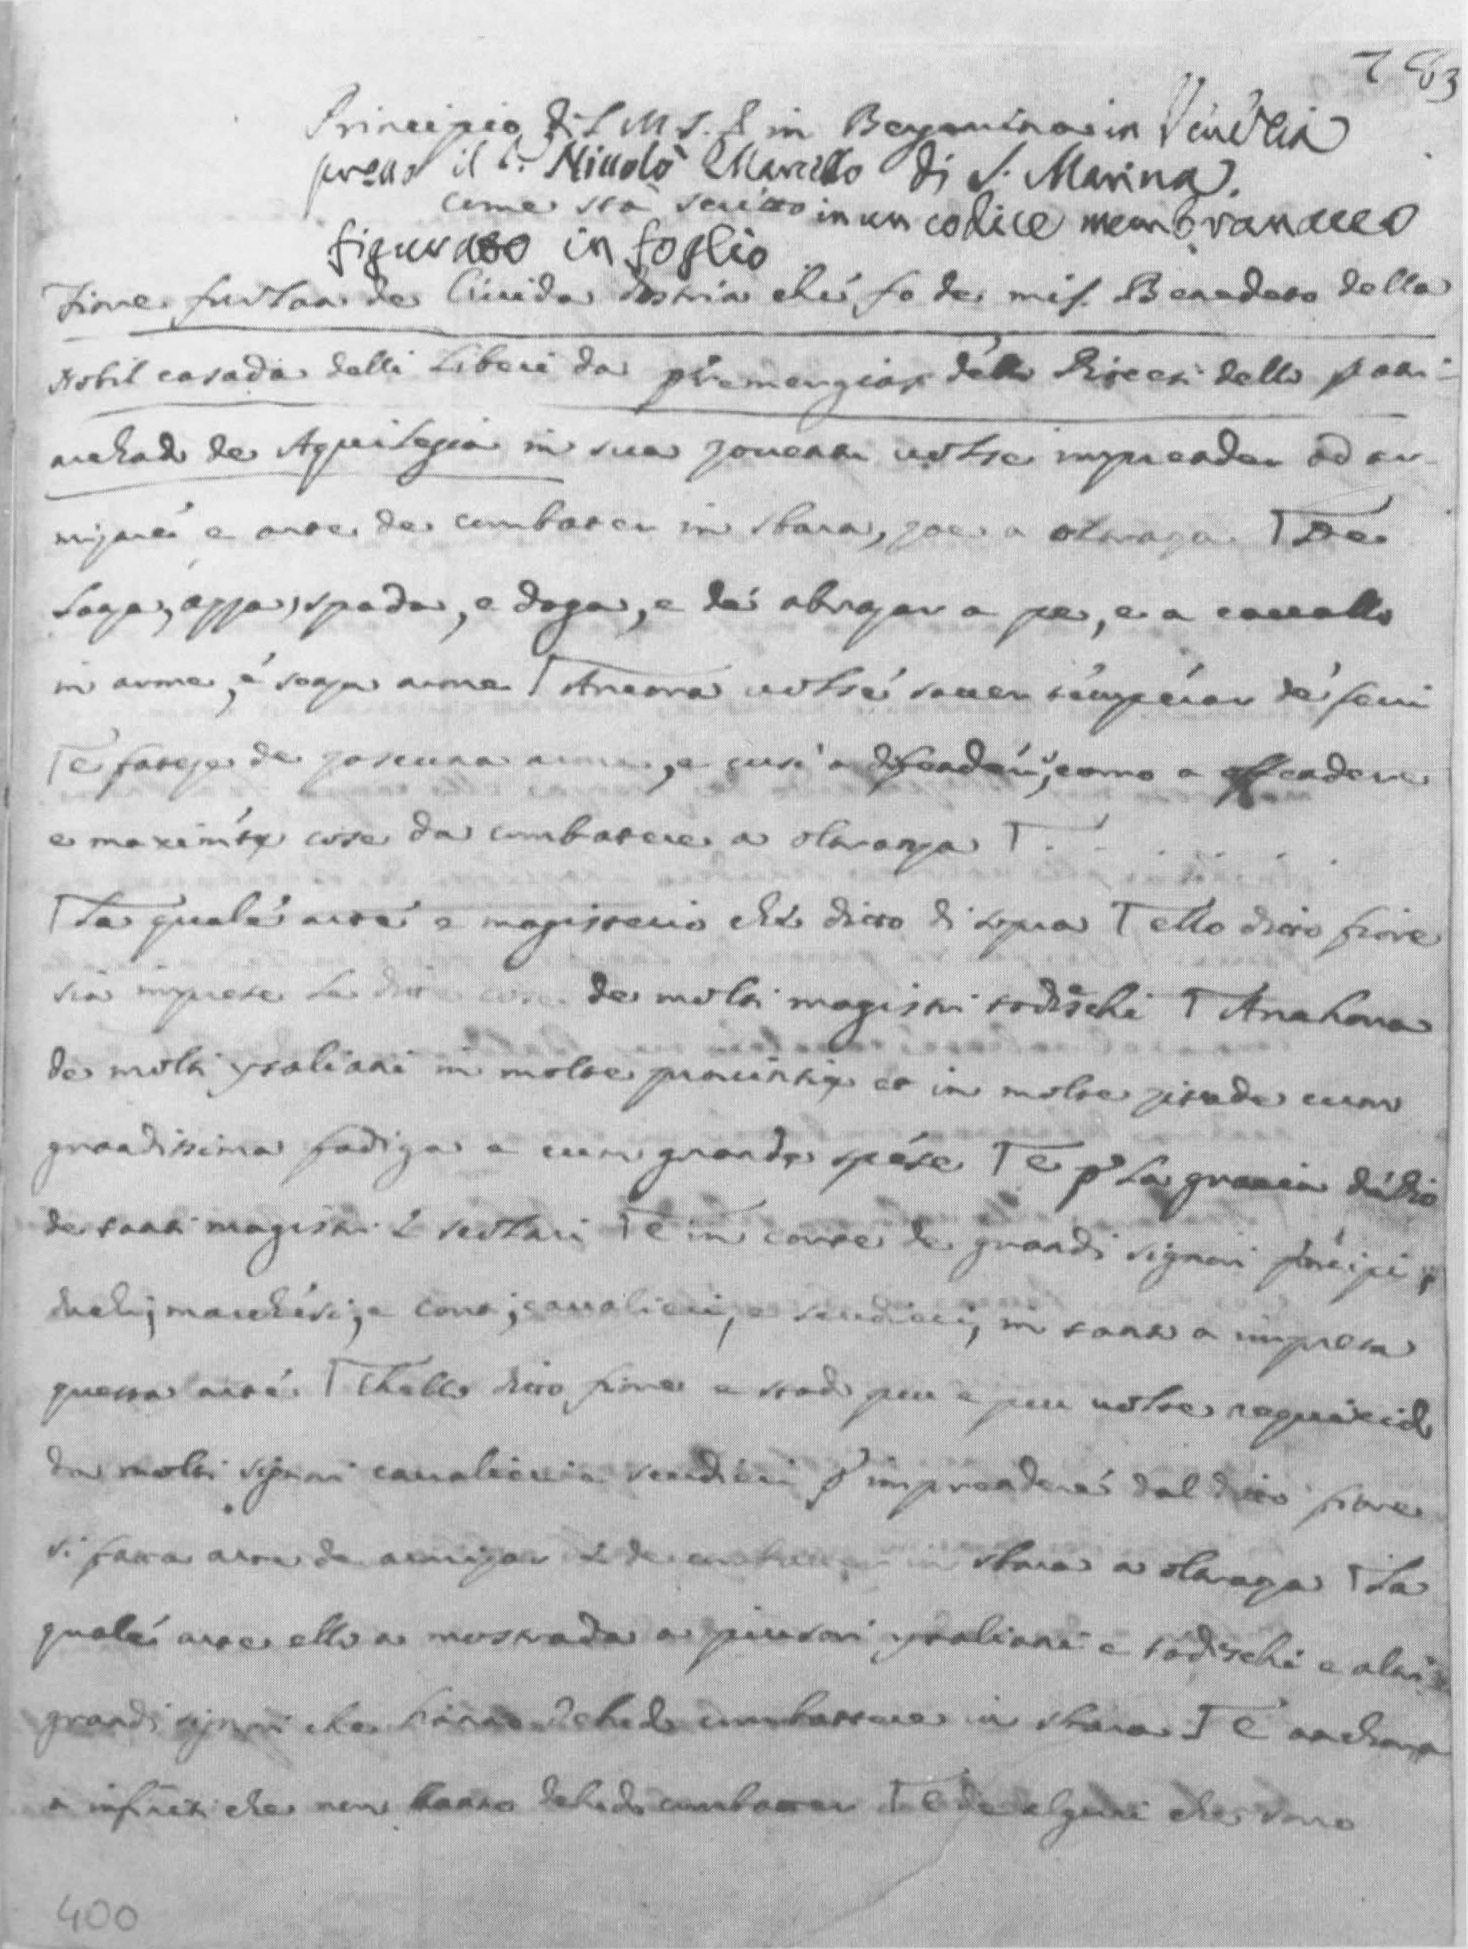 Principio di S M S. in Bergamina in Venezia
presso il S. Niccolò Marcello di S. Marina.
come sta scritto in un codice membranaceo
figurato in foglio
Fiore furlan de Cividà dostria che fo de mis. Benedeto della
Nobil casada delli Liberi da premergiax della diocesi dello patri-
archado de Aquilegia in sua zoventù volse imprender ad ar-
mizare e arte de combater in sbara, zoe a oltranza T De
Lanza, azza, spada, e daga, e de abrazar a pe, e a cavallo
in arme, e senza arme T Ancora volse saver temperar de feri
T e fateze de zascuna arma, e cusì a defendere, como a offendere
e maximse cose da combatere a oltranza T . . . . . .
T La quale arte e magisterio che dito di sopra T ello dito fiore
sià imprese le dite cose de molti magistri todischi T Anchora
de molti ytaliani in molte provintie et in molte zitade cum
grandissima fadiga e cum grande spese T e p la gracia de dio
de tanti magistri & scolari T e in corte de grandi signori principi,
duchi, marchesi, e conti, cavalieri, e scudieri, in tanto a impresa
questa arte T Chello dito fiore e stado piu e piu volte requirido
da molti signori cavalieri e scudieri p imprendere dal dito fiore
si fatta arte de armizar & de combater in sbara a oltranza T La
quale arte ello a mostrada a piusori ytaliani e todischi e altri
grandi signori che hanno debudo combattere in sbara T E anchora
a infiniti che non hanno debudo combatter T E de alguni che sono
400